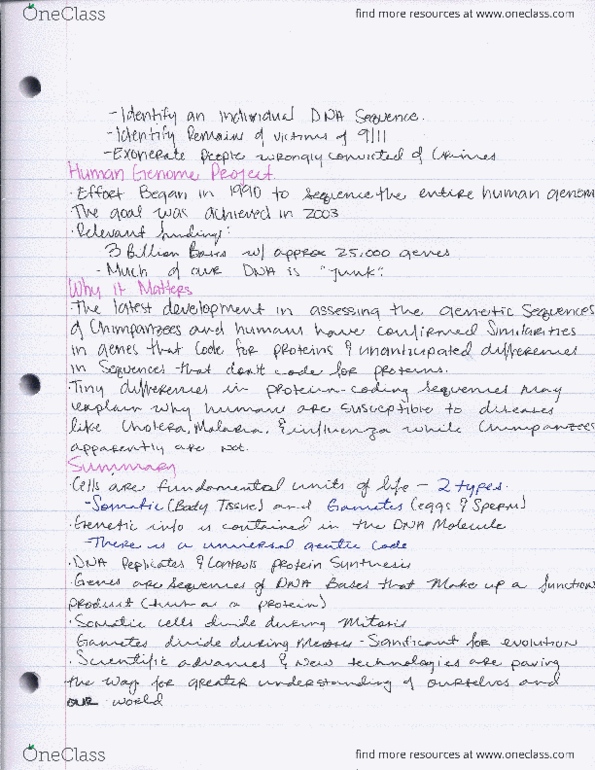 OneClass
find more resources at www.oneclass.com
- Identify an individual DNA Sequence.
- Identify Remains of victims of 9/11
- Exonerate People wrongly convicted of Crimes
Human Genome Project
· Effort Began in 1990 to sequence the entire human genom
The goal was achieved in 2003
· Relevant findings:
3 Billion Bases w/ approx 25,000 genes
- Much of our DNA is "junk".
Why it Matters
· The latest development in assessing the genetic Sequences
of Chimpanzees and humans have confirmed Similarities
in genes that code for proteins & unanticipated differences
in Sequences that don't code for proteins.
· Tiny differences in protein-coding sequences may
explain why humans are susceptible to diseases
like Cholera, Malaria, & influenza while Chimpanzees
apparently are not.
Summary
· Cells are fundamental units of life - 2 types.
- Somatic (Body Tissue) and Gametes (eggs & Sperm)
· Genetic info is contained in the DNA Molecule
- There is a universal gentic Code
· DNA Replicates & Controls protein Synthesis
· Genes are Sequences of DNA Bases that Make up a function
product (such as a protein)
· Somatic cells divide during Mitosis
Gametes divide during - Significant for evolution
· Scientific advances & New technologies are paving
the way for greater understanding of ourselves and
our world
OneClass
find more resources at www.oneclass.com